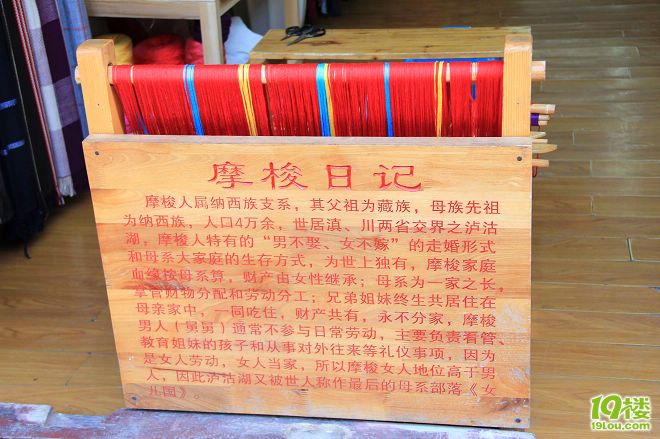 摩梭日记
摩梭人属纳西族支系，其父祖为藏族，母族先祖
为纳西族，人口4万余，世居滇、川两省交界之泸沽
湖，摩梭人特有的“男不娶、女不嫁”的走婚形式
和母系大家庭的生存方式，为世上独有，摩梭家庭
血缘按母系算，财产由女性继承；母系为一家之长，
掌管财物分配和劳动分工；兄弟姐妹终生共居住在
母亲家中，一同吃住，财产共有，永不分家，摩梭
男人（舅舅）通常不参与日常劳动，主要负责看管、
教育姐妹的孩子和从事对外往来等礼仪事项，因为
是女人劳动，女人当家，所以摩梭女人地位高于男
人，因此泸沽湖又被世人称作最后的母系部落《女
儿国》。
19楼
19lou.com